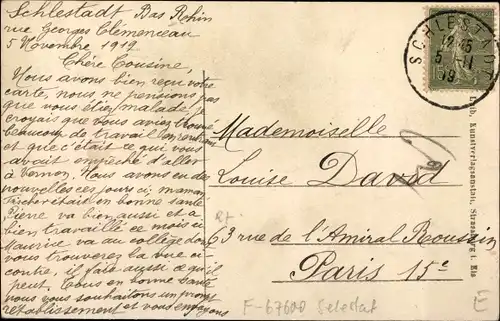 Schlestadt Bas Rehin
rue Georges Clémenceau
5 Novembre 1919.
Chère Cousine,
Nous avons bien reçu votre
carte, nous ne pensions pas
que vous étiez malade, je
croyais que vous aviez trouvé
beaucoup de travail en rentrant
et que c'était ce qui vous
avait empêché d'aller
à Vernon. Nous avons eu des
nouvelles ces jours ci, maman
était en bonne santé
Pierre va bien aussi et a
bien travaillé ce mois ci
Maurice va au collège dont
vous trouverez la vue ci
contre, il fait aussi ce qu'il
peut. Tous en bonne santé
nous vous souhaitons un prompt
rétablissement et vous envoyons
SCHLESTADT
12 45
5 - 11
19
Mademoiselle
Louise David
63 rue de l'Amiral Roussin
Paris 15e
Kunstverlagsanstalt, Strassburg i. Els
F-67600 Selestat
E